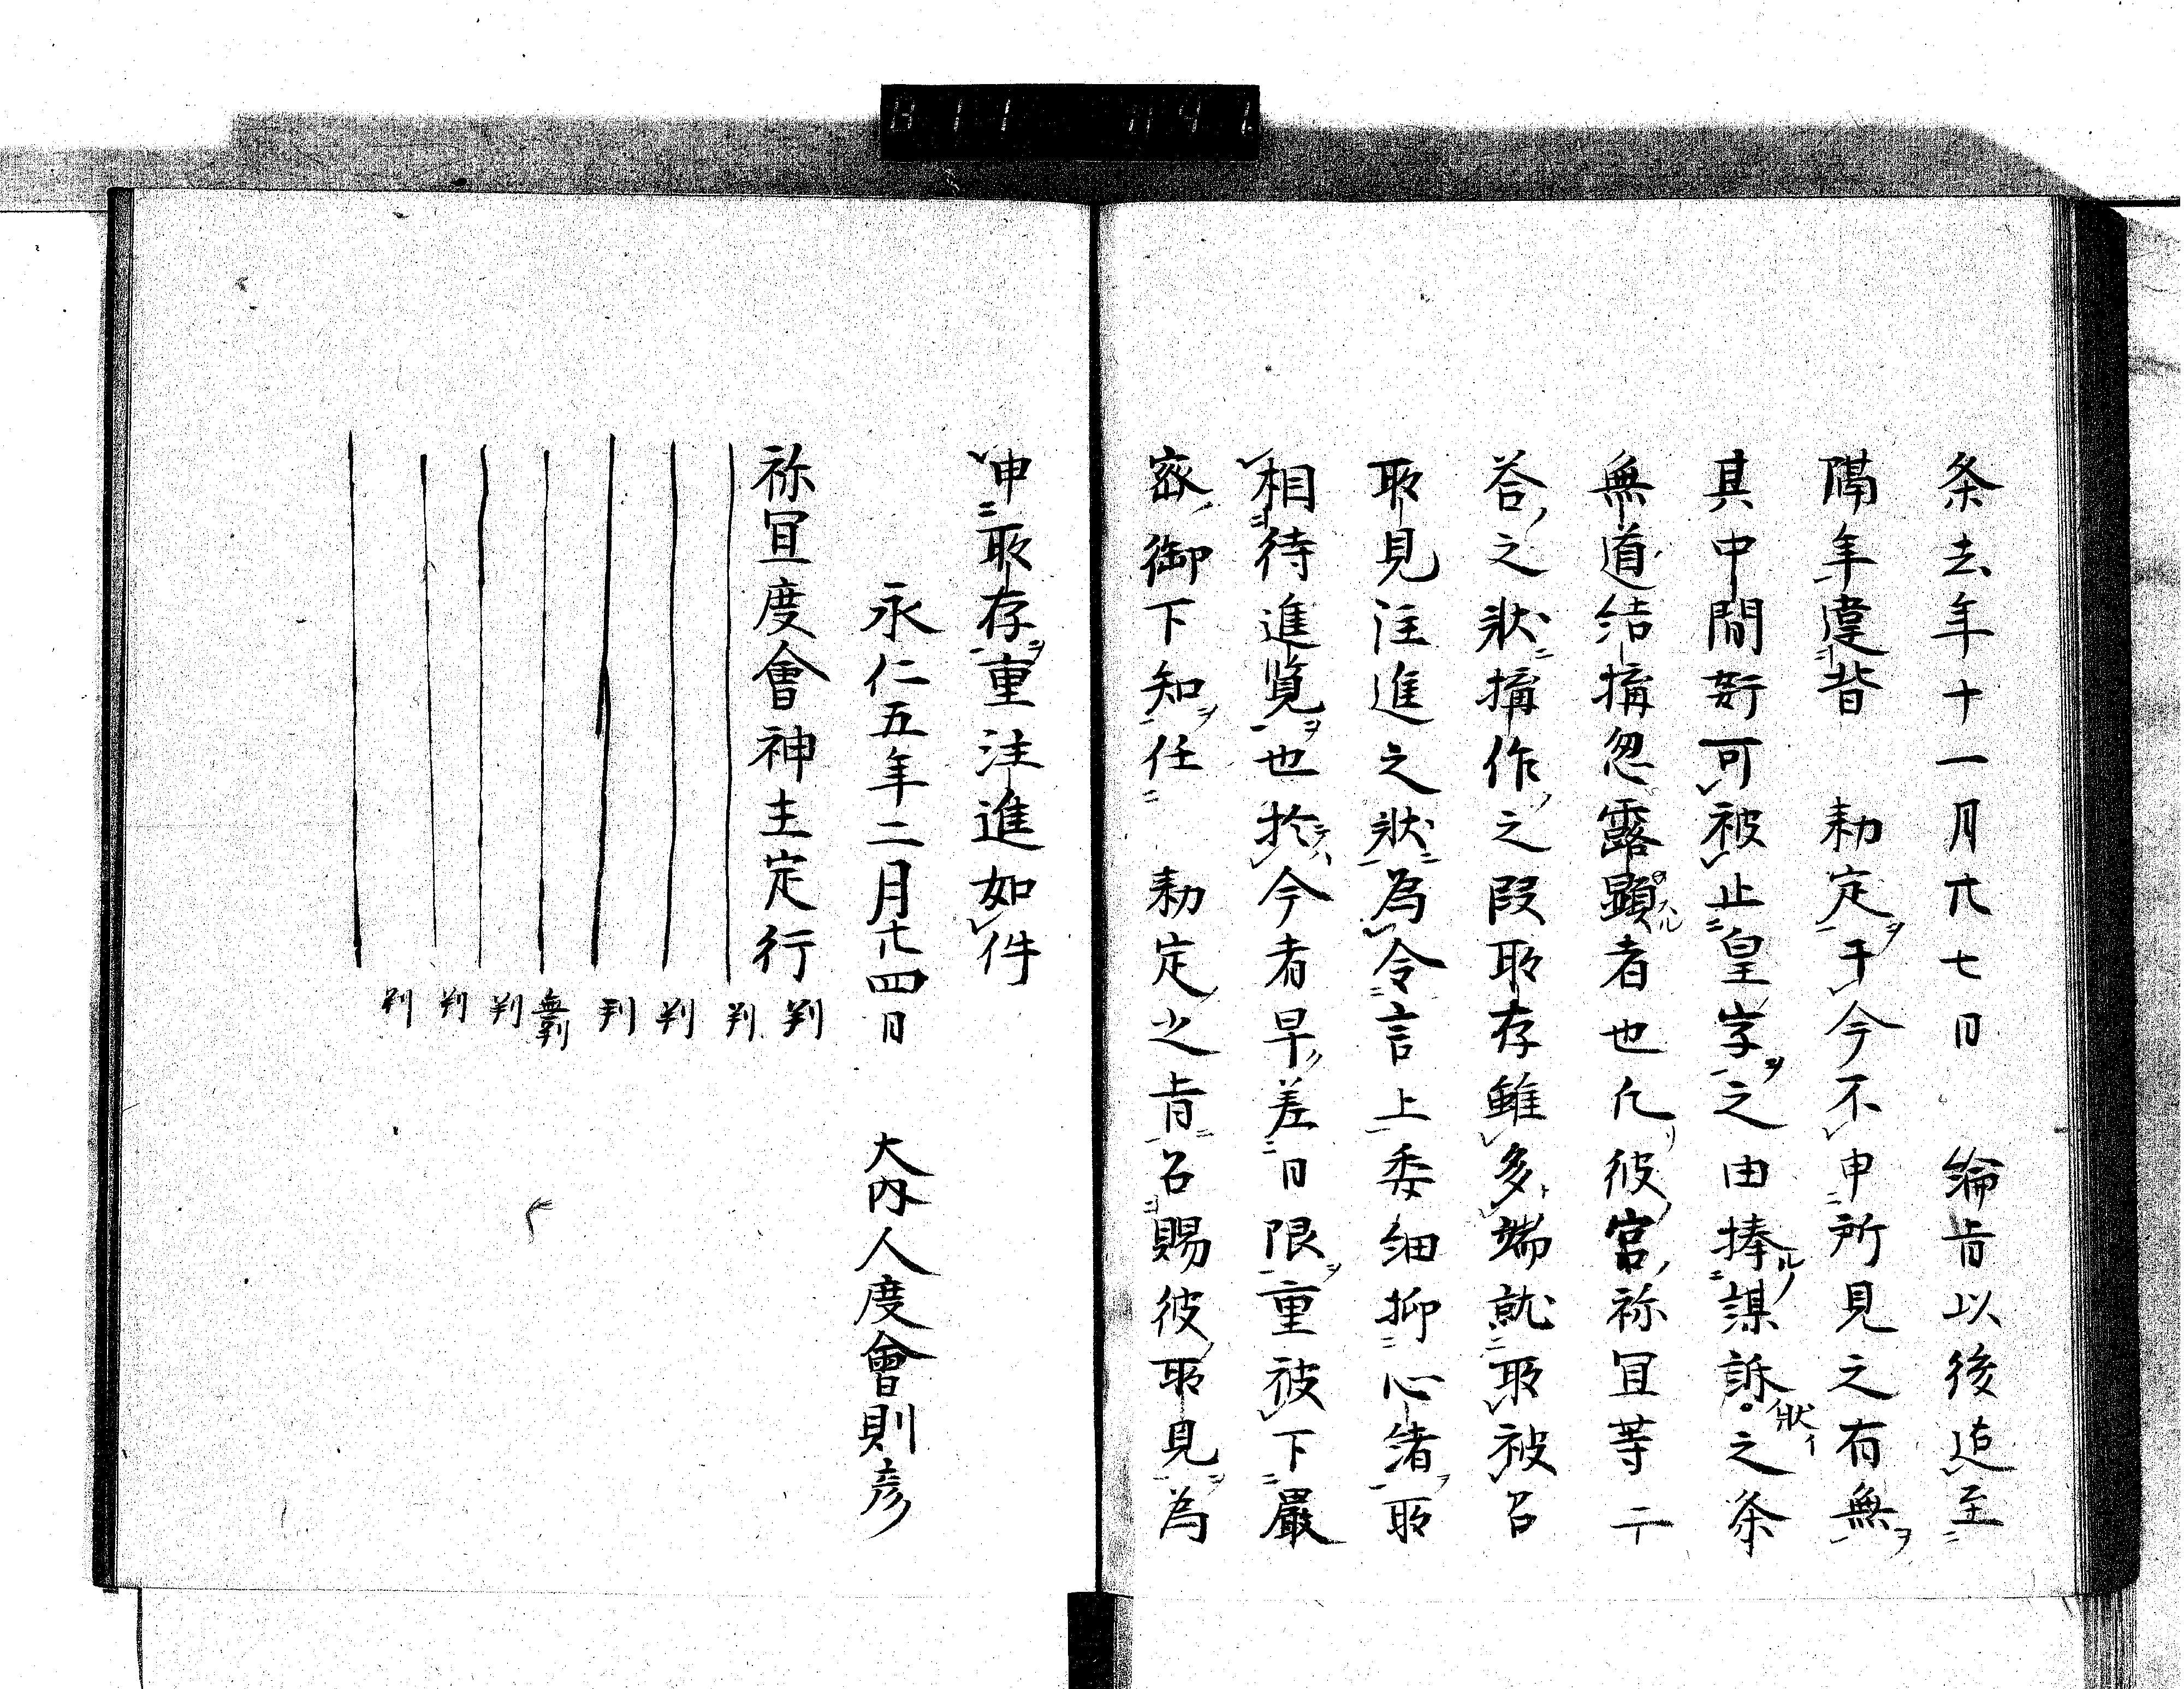 条去年十一月廿七日　綸旨以後迄至
隔年違背　勅定于今不申所見之有無
其中間新可被止皇字之由捧謀訴之条
状イ
無道結搆忽露顕者也凡彼宮祢冝等二
荅之状搆作之段所存雖多端就所被召
所見注進之状為令言上委細抑心緒所
相待進覧也於今者早差日限重被下嚴
密御下知任　勅定之旨召賜彼所見為
申所存重注進如件
永仁五年二月廿四日　大内人度會則彦
祢冝度會神主定行　判
判
判
判
無判
判
判
判